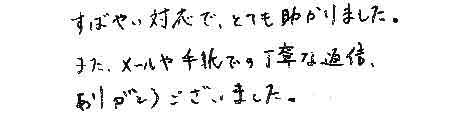 すばやい対応で、とても助かりました。
また、メールや手紙での丁寧な返信、
ありがとうございました。